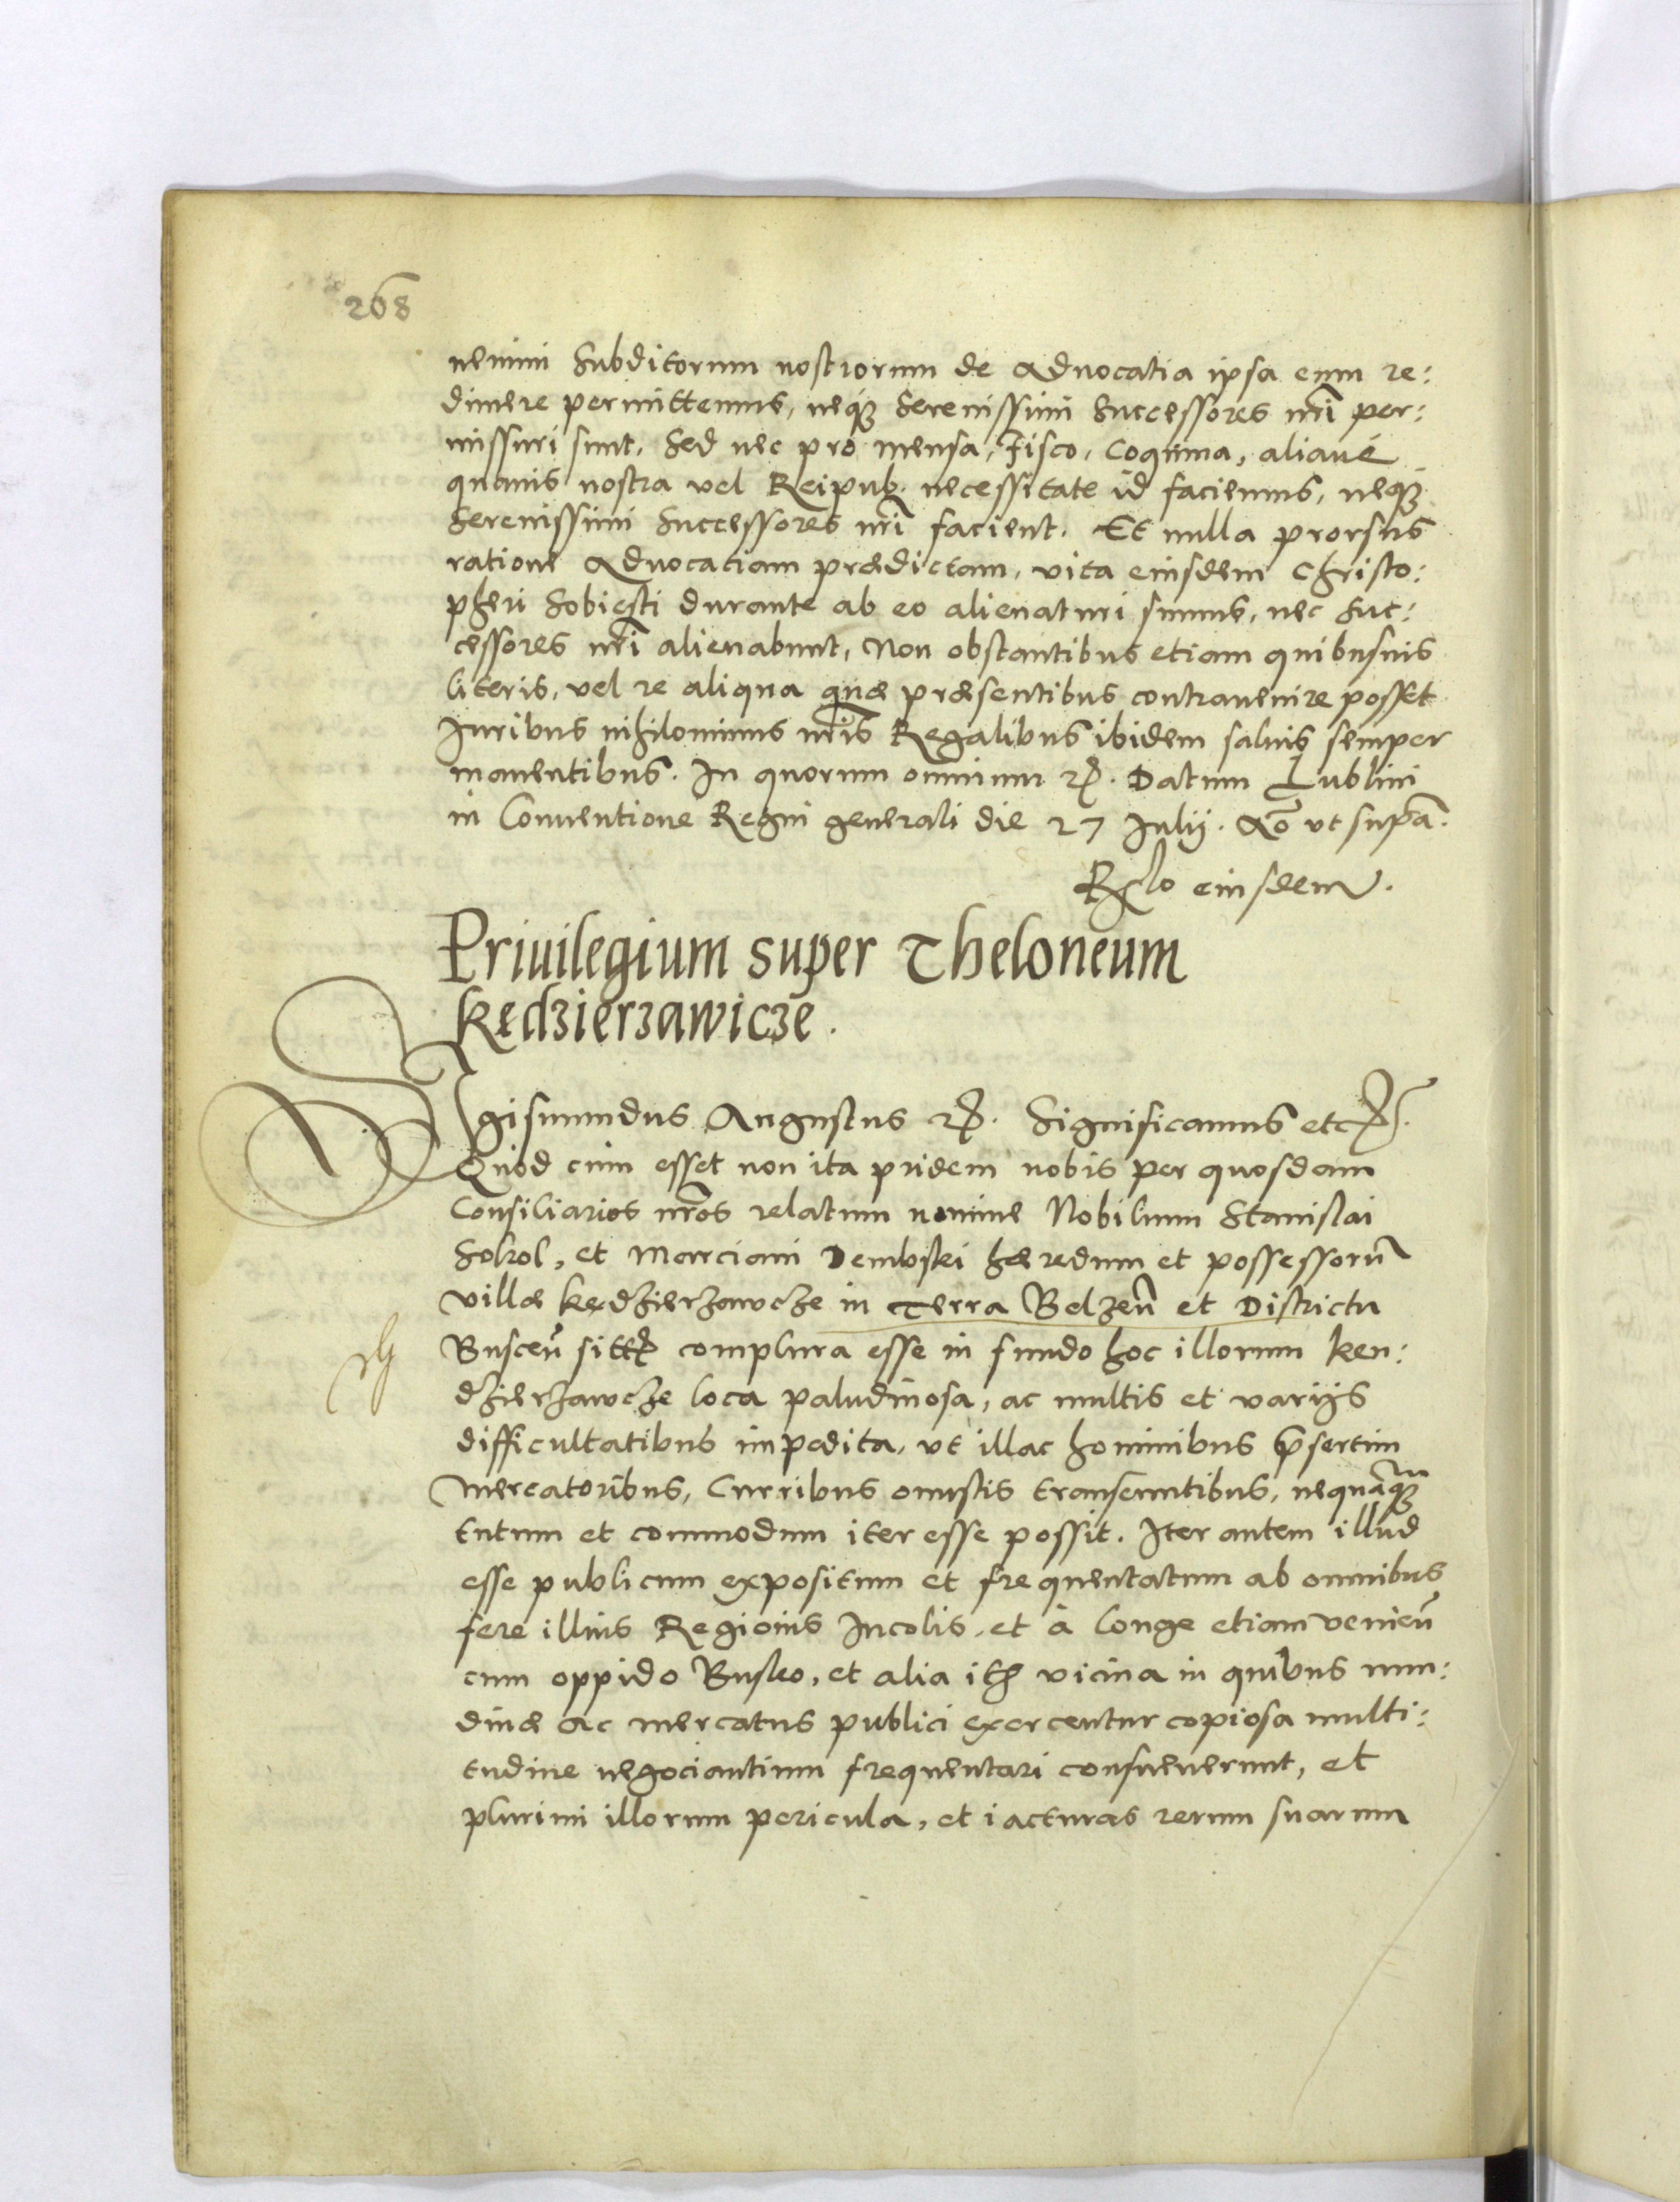 268
nemini Subditorum nostrorum de Aduocatia ipsa eum re:
dimere permittemus, neq́3 Serenissimi Successores nr̃i per:
missuri sunt. Sed nec pro mensa, Fisco, Coquina, aliaué
quauis nostra vel Reipub. necessitate id faciemus, neq́3
Serenissimi Successores nr̃i facient. Et nulla prorsus
ratione Aduocaciam prædictam, vita eiusdem Christo:
pheri Sobieski durante ab eo alienaturi sumus, nec Suc:
cessores nr̃i alienabunt, Non obstantibus etiam quibusuis
literis, vel re aliqua quæ præsentibus contrauenire posset
Iuribus nihilominus nr̃is Regalibus ibidem saluis semper
manentibus. In quorum omnium etc. Datum Lublini
in Conuentione Regni generali die 27 Iulij. Ao vt supa.
Relo eiusdem.
Priuilegium super Theloneum
kędzierzawicze.
Sigismundus Augustus etc. Significamus etc.
Quod cum esset non ita pridem nobis per quosdam
Consiliarios nr̃os relatum nomine Nobilium Stanislai
Sokol, et Marciani Dembski hæredum et possessorũ
villæ kędzierzawcze in Terra Belzeñ et Districtu
Busceñ sitæ complura esse in fundo hoc illorum ken:
dzierzawcze loca paludinosa, ac multis et varijs
difficultatibus impedita, vt illac hominibus p̃sertim
mercatoribus, Curribus onustis transeuntibus, nequaq̃3
tutum et commodum iter esse possit. Iter autem illud
esse publicum expositum et frequentatum ab omnibus
fere illius Regionis Incolis, et à longe etiam venieñ
cum oppido Busko, et alia itẽ vicina in quibus nun:
dinæ ac mercatus publici exercentur copiosa multi:
tudine negociantium frequentari consueuerunt, et
plurimi illorum pericula, et iacturas rerum suarum